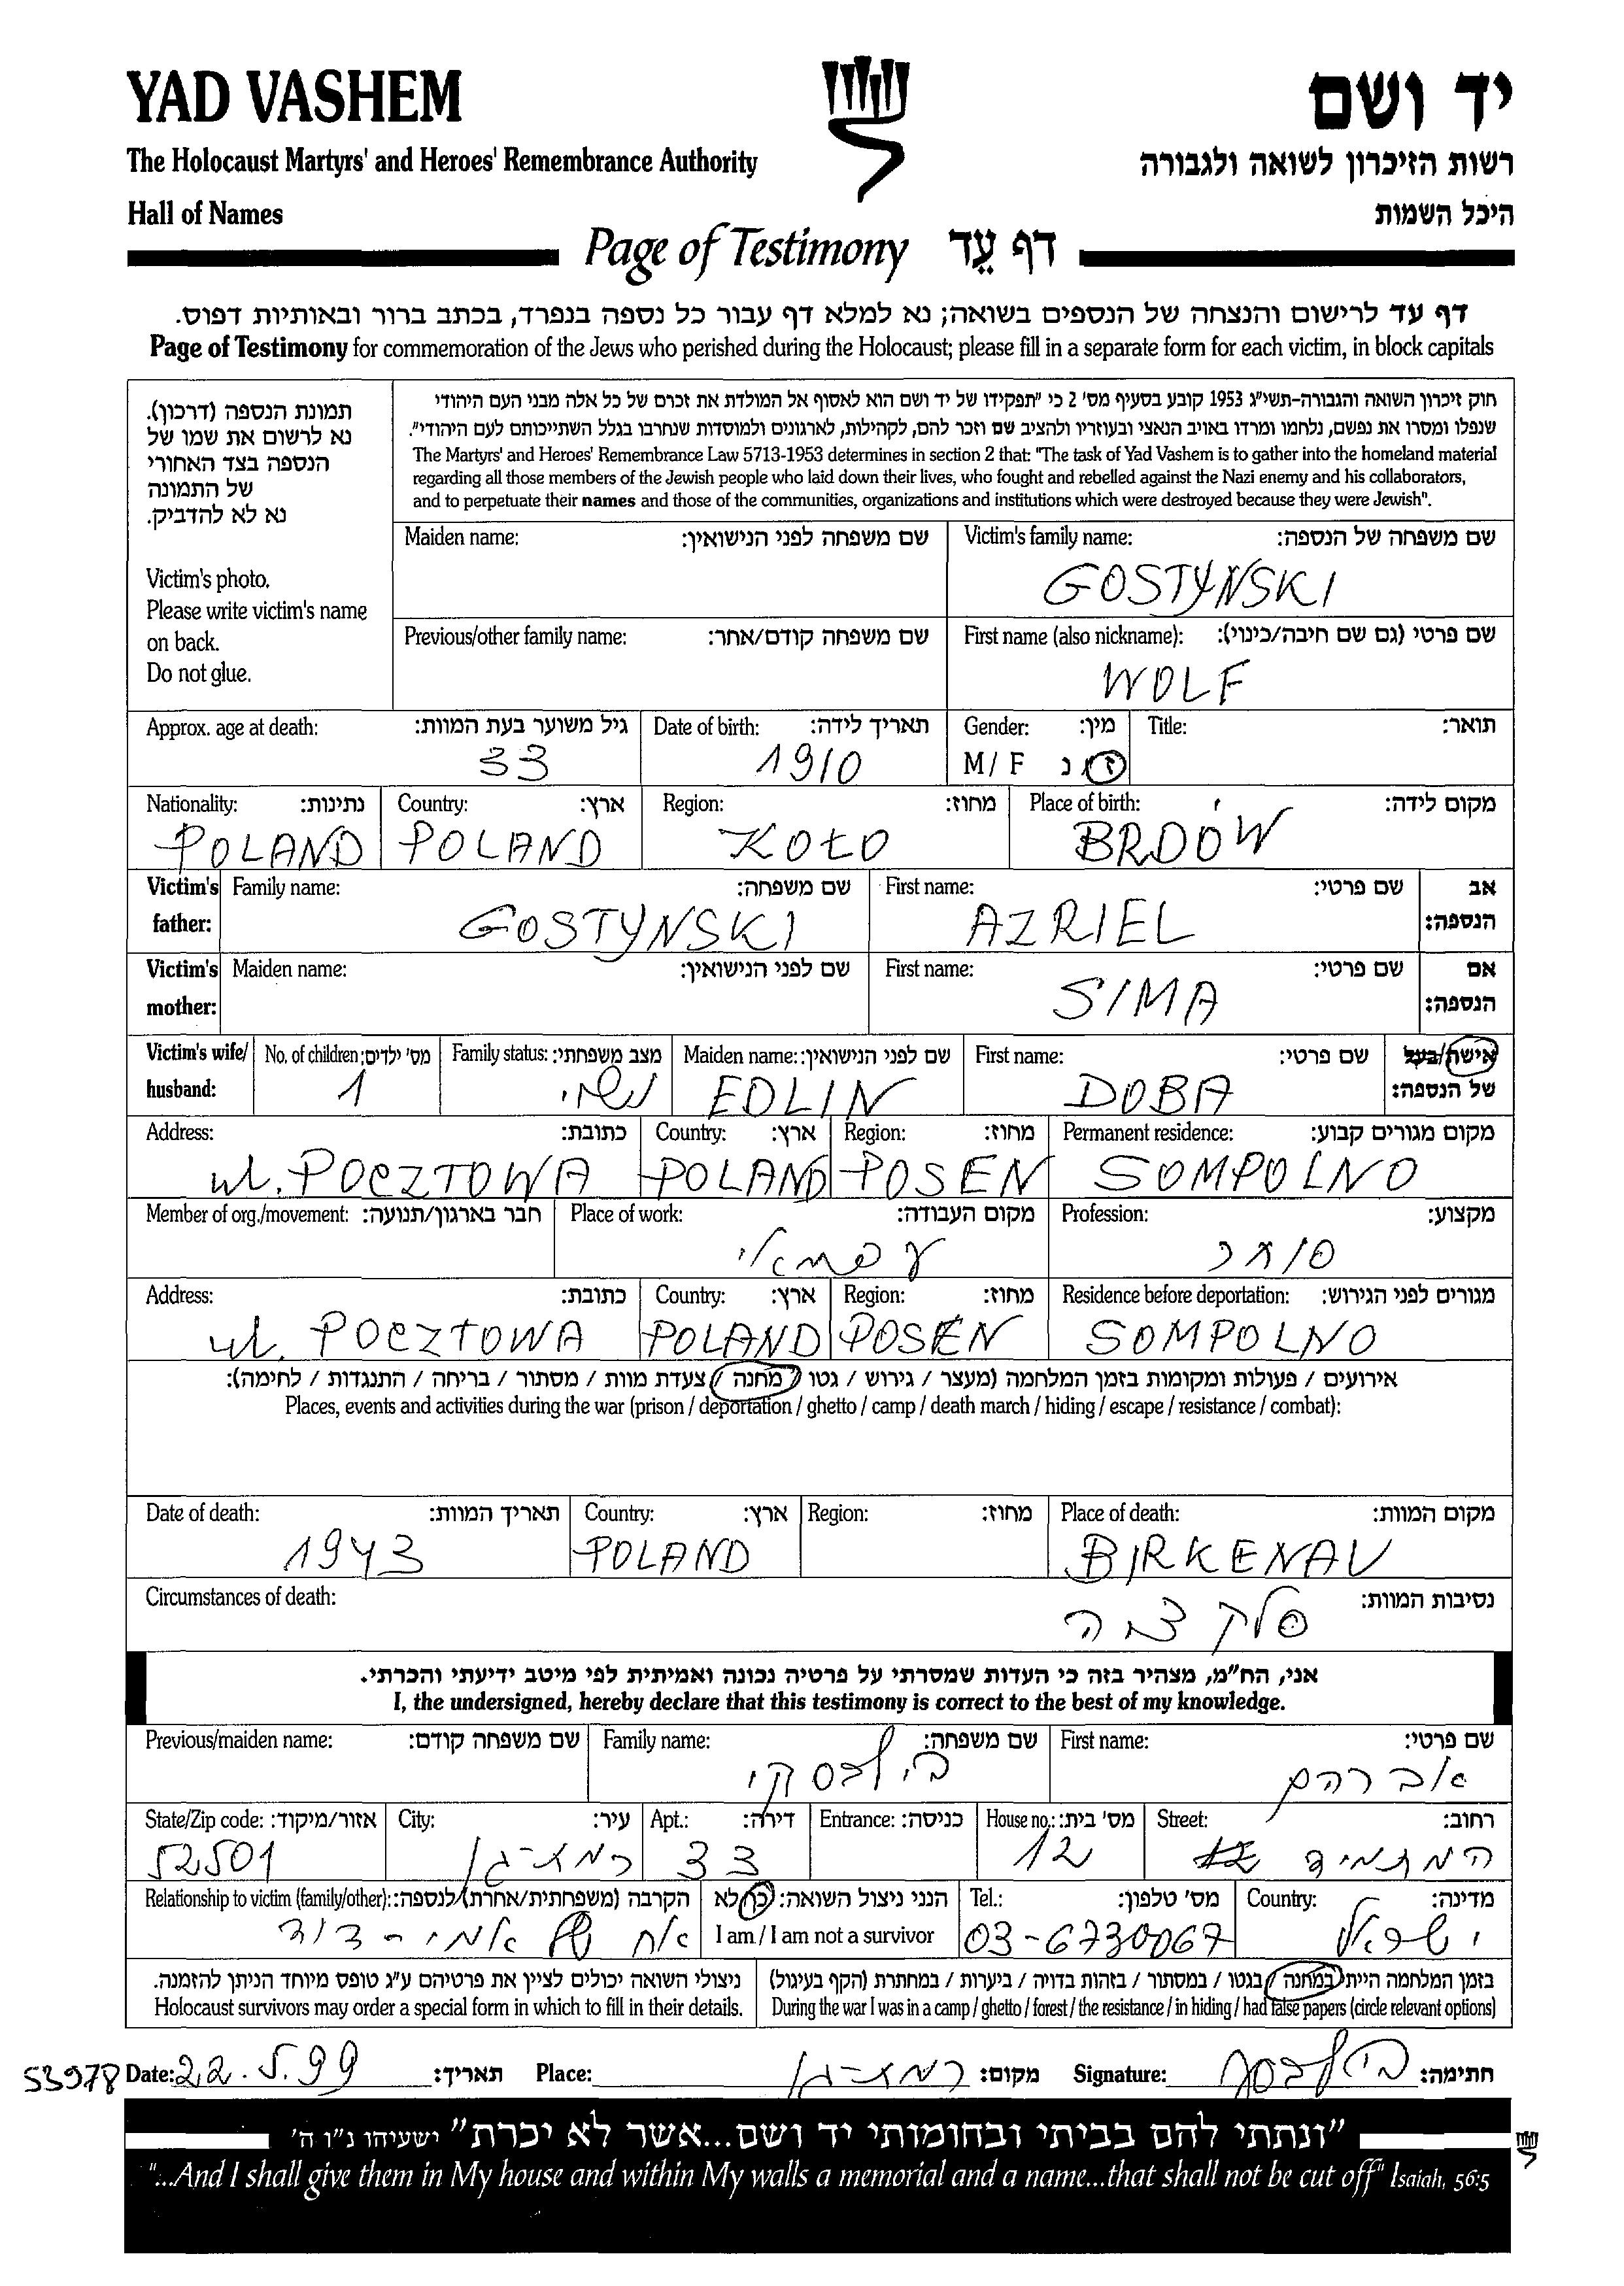 YAD VASHEM
יד ושם
The Holocaust Martyrs' and Heroes' Remembrance Authority
רשות הזיכרון לשואה ולגבורה
Hall of Names
היכל השמות
Page of Testimony דף עֵד
דף עד לרישום והנצחה של הנספים בשואה; נא למלא דף עבור כל נספה בנפרד, בכתב ברור ובאותיות דפוס.
Page of Testimony for commemoration of the Jews who perished during the Holocaust; please fill in a separate form for each victim, in block capitals
תמונת הנספה (דרכון).
נא לרשום את שמו של
הנספה בצד האחורי
של התמונה
נא לא להדביק.
Victim's photo.
Please write victim's name
on back.
Do not glue.
חוק זיכרון השואה והגבורה-תשי"ג 1953 קובע בסעיף מס' 2 כי "תפקידו של יד ושם הוא לאסוף אל המולדת את זכרם של כל אלה מבני העם היהודי
שנפלו ומסרו את נפשם, נלחמו ומרדו באויב הנאצי ובעוזריו ולהציב שם וזכר להם, לקהילות, לארגונים ולמוסדות שנחרבו בגלל השתייכותם לעם היהודי".
The Martyrs' and Heroes' Remembrance Law 5713-1953 determines in section 2 that: "The task of Yad Vashem is to gather into the homeland material
regarding all those members of the Jewish people who laid down their lives, who fought and rebelled against the Nazi enemy and his collaborators,
and to perpetuate their names and those of the communities, organizations and institutions which were destroyed because they were Jewish".
Maiden name: שם משפחה לפני הנישואין:
Victim's family name: שם משפחה של הנספה:
GOSTYNSKI
Previous/other family name: שם משפחה קודם/אחר:
First name (also nickname): שם פרטי (גם שם חיבה/כינוי):
WOLF
Approx. age at death: גיל משוער בעת המוות:
33
Date of birth: תאריך לידה:
1910
Gender: מין:
M / F ז/נ
Title: תואר:
Nationality: נתינות:
POLAND
Country: ארץ:
POLAND
Region: מחוז:
KOŁO
Place of birth: מקום לידה:
BRDÓW
Victim's father: Family name: שם משפחה:
GOSTYNSKI
First name: שם פרטי: אב הנספה:
AZRIEL
Victim's mother: Maiden name: שם לפני הנישואין:
First name: שם פרטי: אם הנספה:
SIMA
Victim's wife/ husband: No. of children: מס' ילדים:
1
Family status: מצב משפחתי:
נשוי
Maiden name: שם לפני הנישואין:
EDLIN
First name: שם פרטי: אישה/בעל של הנספה:
DOBA
Address: כתובת:
ul. POCZTOWA
Country: ארץ:
POLAND
Region: מחוז:
POSEN
Permanent residence: מקום מגורים קבוע:
SOMPOLNO
Member of org./movement: חבר בארגון/תנועה:
Place of work: מקום העבודה:
עצמאי
Profession: מקצוע:
סוחר
Address: כתובת:
ul. POCZTOWA
Country: ארץ:
POLAND
Region: מחוז:
POSEN
Residence before deportation: מגורים לפני הגירוש:
SOMPOLNO
אירועים / פעולות ומקומות בזמן המלחמה (מעצר / גירוש / גטו / מחנה / צעדת מוות / מסתור / בריחה / התנגדות / לחימה):
Places, events and activities during the war (prison / deportation / ghetto / camp / death march / hiding / escape / resistance / combat):
Date of death: תאריך המוות:
1943
Country: ארץ:
POLAND
Region: מחוז:
Place of death: מקום המוות:
BIRKENAU
Circumstances of death: נסיבות המוות:
סלקציה
אני, הח"מ, מצהיר בזה כי העדות שמסרתי על פרטיה נכונה ואמיתית לפי מיטב ידיעתי והכרתי.
I, the undersigned, hereby declare that this testimony is correct to the best of my knowledge.
Previous/maiden name: שם משפחה קודם:
Family name: שם משפחה:
בילבסקי
First name: שם פרטי:
אברהם
State/Zip code: אזור/מיקוד:
52501
City: עיר:
רמת-גן
Apt.: דירה:
33
Entrance: כניסה:
House no.: מס' בית:
12
Street: רחוב:
המתמיד
Relationship to victim (family/other): הקרבה (משפחתית/אחרת) לנספה:
אח של אמי - דוד
הנני ניצול השואה: כן/לא
I am / I am not a survivor
Tel.: מס' טלפון:
03-6730067
Country: מדינה:
ישראל
ניצולי השואה יכולים לציין את פרטיהם ע"ג טופס מיוחד הניתן להזמנה.
Holocaust survivors may order a special form in which to fill in their details.
בזמן המלחמה הייתי במחנה / בגטו / במסתור / בזהות בדויה / ביערות / במחתרת (הקף בעיגול)
During the war I was in a camp / ghetto / forest / the resistance / in hiding / had false papers (circle relevant options)
53978 Date: 22.5.99 תאריך: Place: רמת-גן מקום: Signature: חתימה:
"ונתתי להם בביתי ובחומותי יד ושם...אשר לא יכרת" ישעיהו נ"ו ה'
"...And I shall give them in My house and within My walls a memorial and a name...that shall not be cut off" Isaiah, 56:5